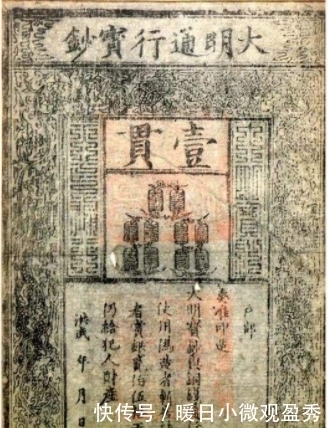 大明通行寶鈔
壹貫
戶部
奏准印造
大明寶鈔與銅錢
使用偽造者斬
者賞銀貳伯
仍給犯人財
洪武 年 月 日
快传号／暖日小微观盈秀